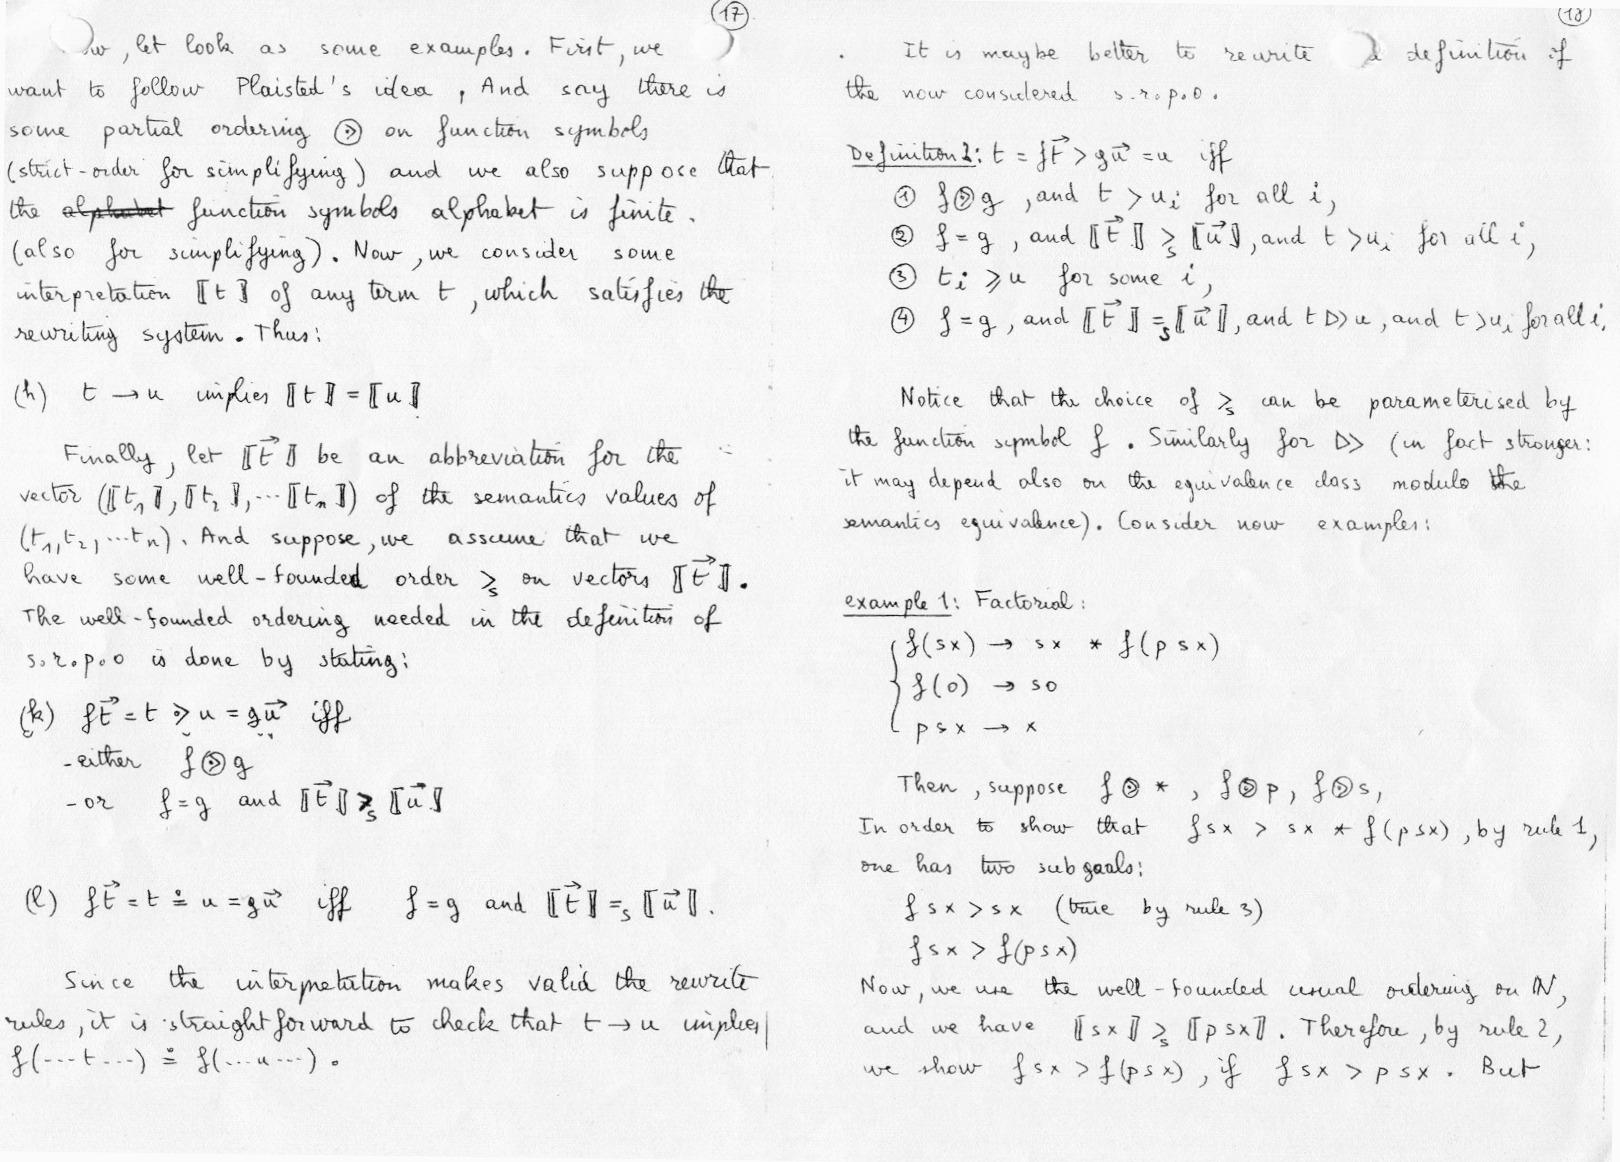 17
, let look as some examples. First, we
want to follow Plaisted's idea, And say there is
some partial ordering ⧁ on function symbols
(strict-order for simplifying) and we also suppose that
the alphabet function symbols alphabet is finite.
(also for simplifying). Now, we consider some
interpretation ⟦t⟧ of any term t, which satisfies the
rewriting system. Thus:
(h) t → u implies ⟦t⟧ = ⟦u⟧
Finally, let ⟦t⃗⟧ be an abbreviation for the
vector (⟦t₁⟧, ⟦t₂⟧, ... ⟦tₙ⟧) of the semantics values of
(t₁, t₂, ... tn). And suppose, we assume that we
have some well-founded order ⩾ₛ on vectors ⟦t⃗⟧.
The well-founded ordering needed in the definition of
s.r.p.o is done by stating:
(k) ft⃗ = t ⩾̇ u = gu⃗ iff
- either f ⧁ g
- or f = g and ⟦t⃗⟧ ⩾ₛ ⟦u⃗⟧
(l) ft⃗ = t ≐ u = gu⃗ iff f = g and ⟦t⃗⟧ =ₛ ⟦u⃗⟧.
Since the interpretation makes valid the rewrite
rules, it is straightforward to check that t → u implies
f(---t---) ≐ f(...u---).
18
It is maybe better to rewrite definition if
the now considered s.r.p.o.
Definition 2: t = ft⃗ > gu⃗ = u iff
① f ⧁ g, and t > uᵢ for all i,
② f = g, and ⟦t⃗⟧ ⩾ₛ ⟦u⃗⟧, and t > uᵢ for all i,
③ tᵢ ⩾ u for some i,
④ f = g, and ⟦t⃗⟧ =ₛ ⟦u⃗⟧, and t ▷> u, and t > uᵢ for all i.
Notice that the choice of ⩾ₛ can be parameterised by
the function symbol f. Similarly for ▷> (in fact stronger:
it may depend also on the equivalence class modulo the
semantics equivalence). Consider now examples:
example 1: Factorial:
f(sx) → sx * f(p sx)
f(0) → s0
p s x → x
Then, suppose f ⧁ *, f ⧁ p, f ⧁ s,
In order to show that fsx > sx * f(psx), by rule 1,
one has two subgoals:
f sx > sx (true by rule 3)
f sx > f(psx)
Now, we use the well-founded usual ordering on ℕ,
and we have ⟦sx⟧ ⩾ₛ ⟦psx⟧. Therefore, by rule 2,
we show f sx > f(psx), if f sx > p sx. But